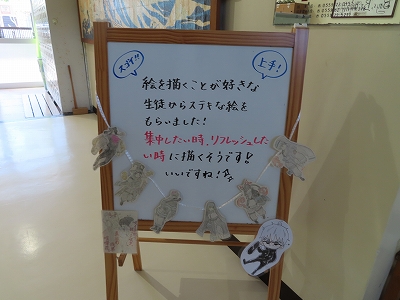 大好き!!
上手!
絵を描くことが好きな
生徒からステキな絵を
もらいました!
集中したい時、リフレッシュした
い時に描くそうです!
いいですね!